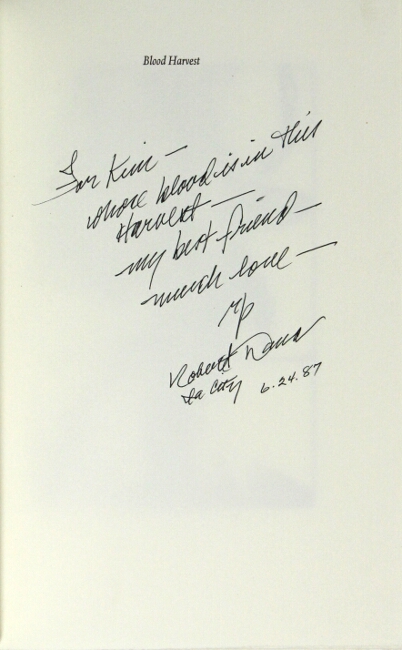 Blood Harvest
For Kim —
whose blood is in this
Harvest —
my best friend —
much love —
Robert Dana
Ia City 6.24.87